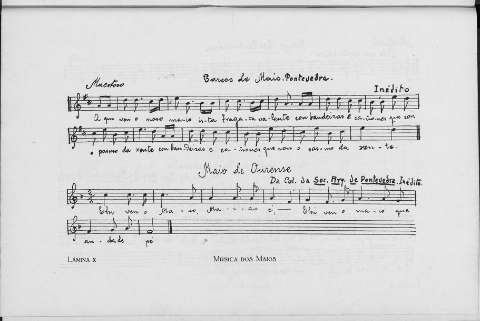 Maestoso Barcos de Maio. Pontevedra.
Inédito
O que ven o noso maio n-ta fraga-ta va-lente con bandeiras e canónes que son
o pasmo da xente con bandeiras e ca-nónes que son o pasmo da xen-te.
Maio de Ourense
Da Col. da Soc. Arq. de Pontevedra. Inédito
ven o Ma-io, Ma-io e, ven o ma-io que
an-da de pe
LÁMINA X MÚSICA DOS MAIOS